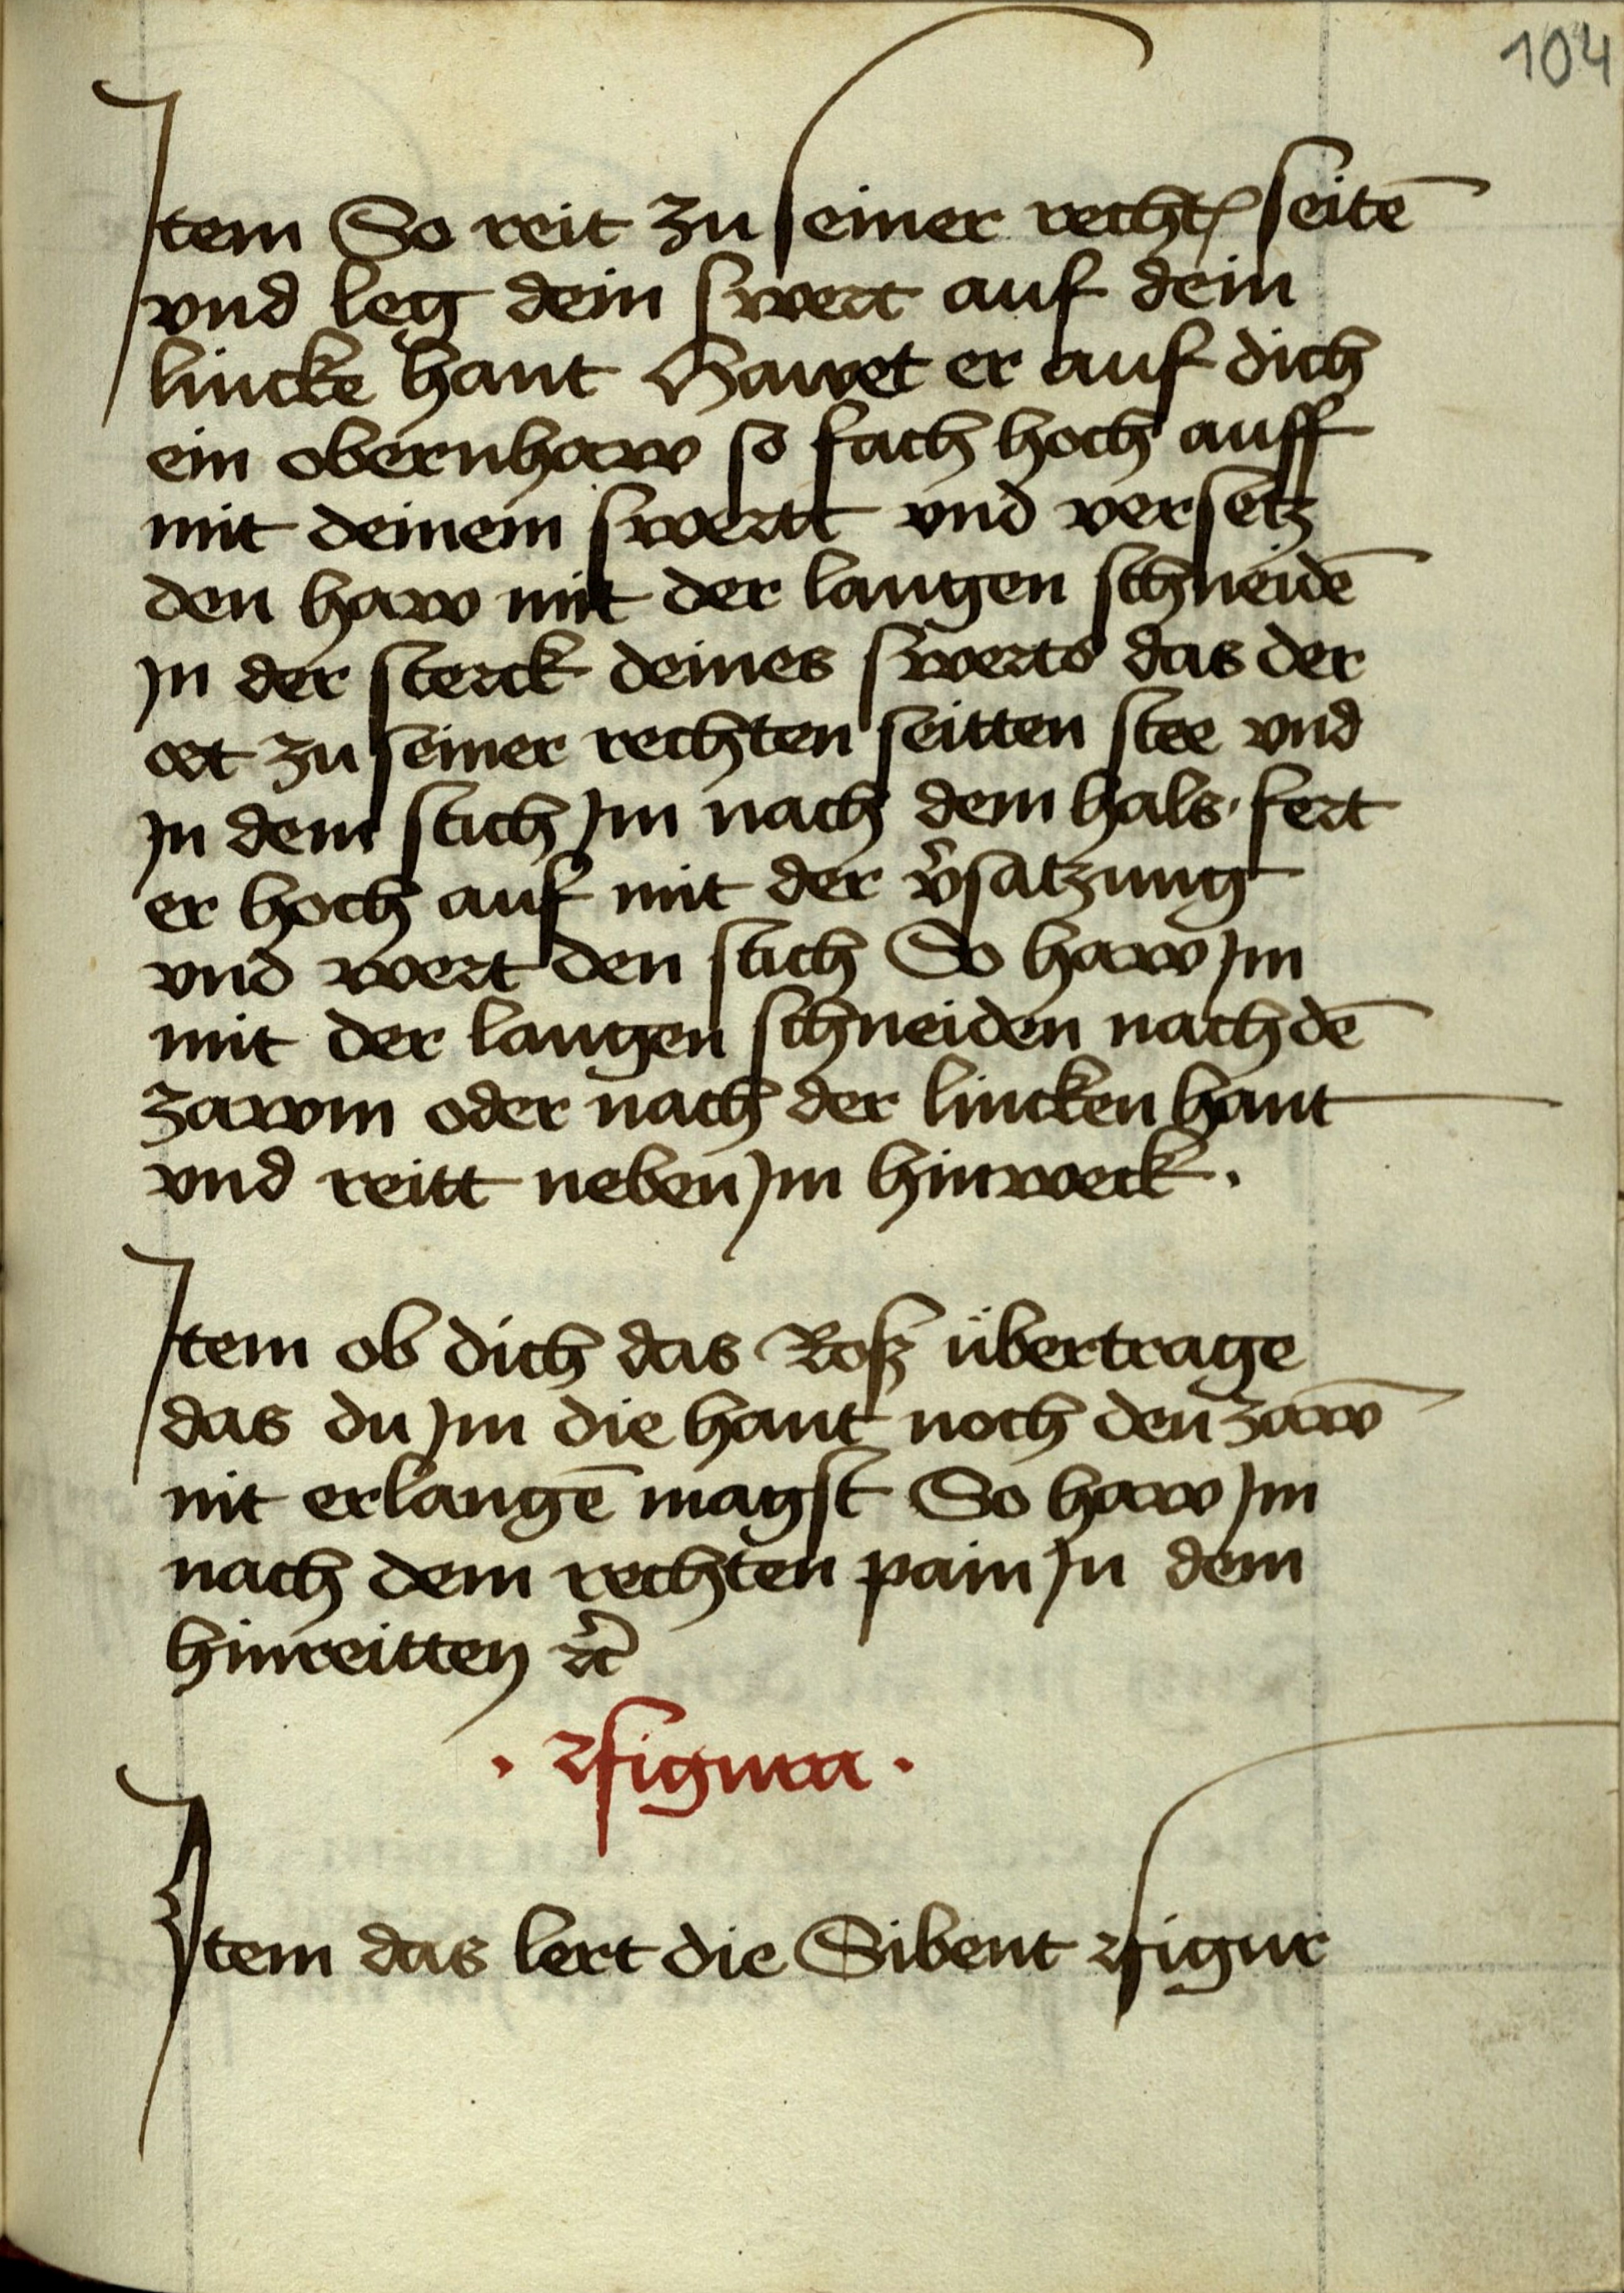 104
Item So reit zu seiner rechtꝭ seitē
vnd leg dein swert auf dein
lincke hant Hawet er auf dich
ein obernhaw so fach hoch auff
mit deinem swertt vnd versetz
den haw mit der langen schneidē
jn der sterck deines swerts das der
ort zu seiner rechten seitten stee vnd
jn dem stich jm nach dem hals · fert
er hoch auf mit der v̉satzung
vnd wert den stich So haw jm
mit der langen schneiden nach dē
zawm oder nach der lincken hant
vnd reitt neben jm hinweck .
Item ob dich das Roß übertrage
das du jm die hant noch den zaw̄
nit erlangē magst So haw jm
nach dem rechten pain jn dem
hinreitten ꝛc̉
· Figura ·
Item das lert die Sibent Figur